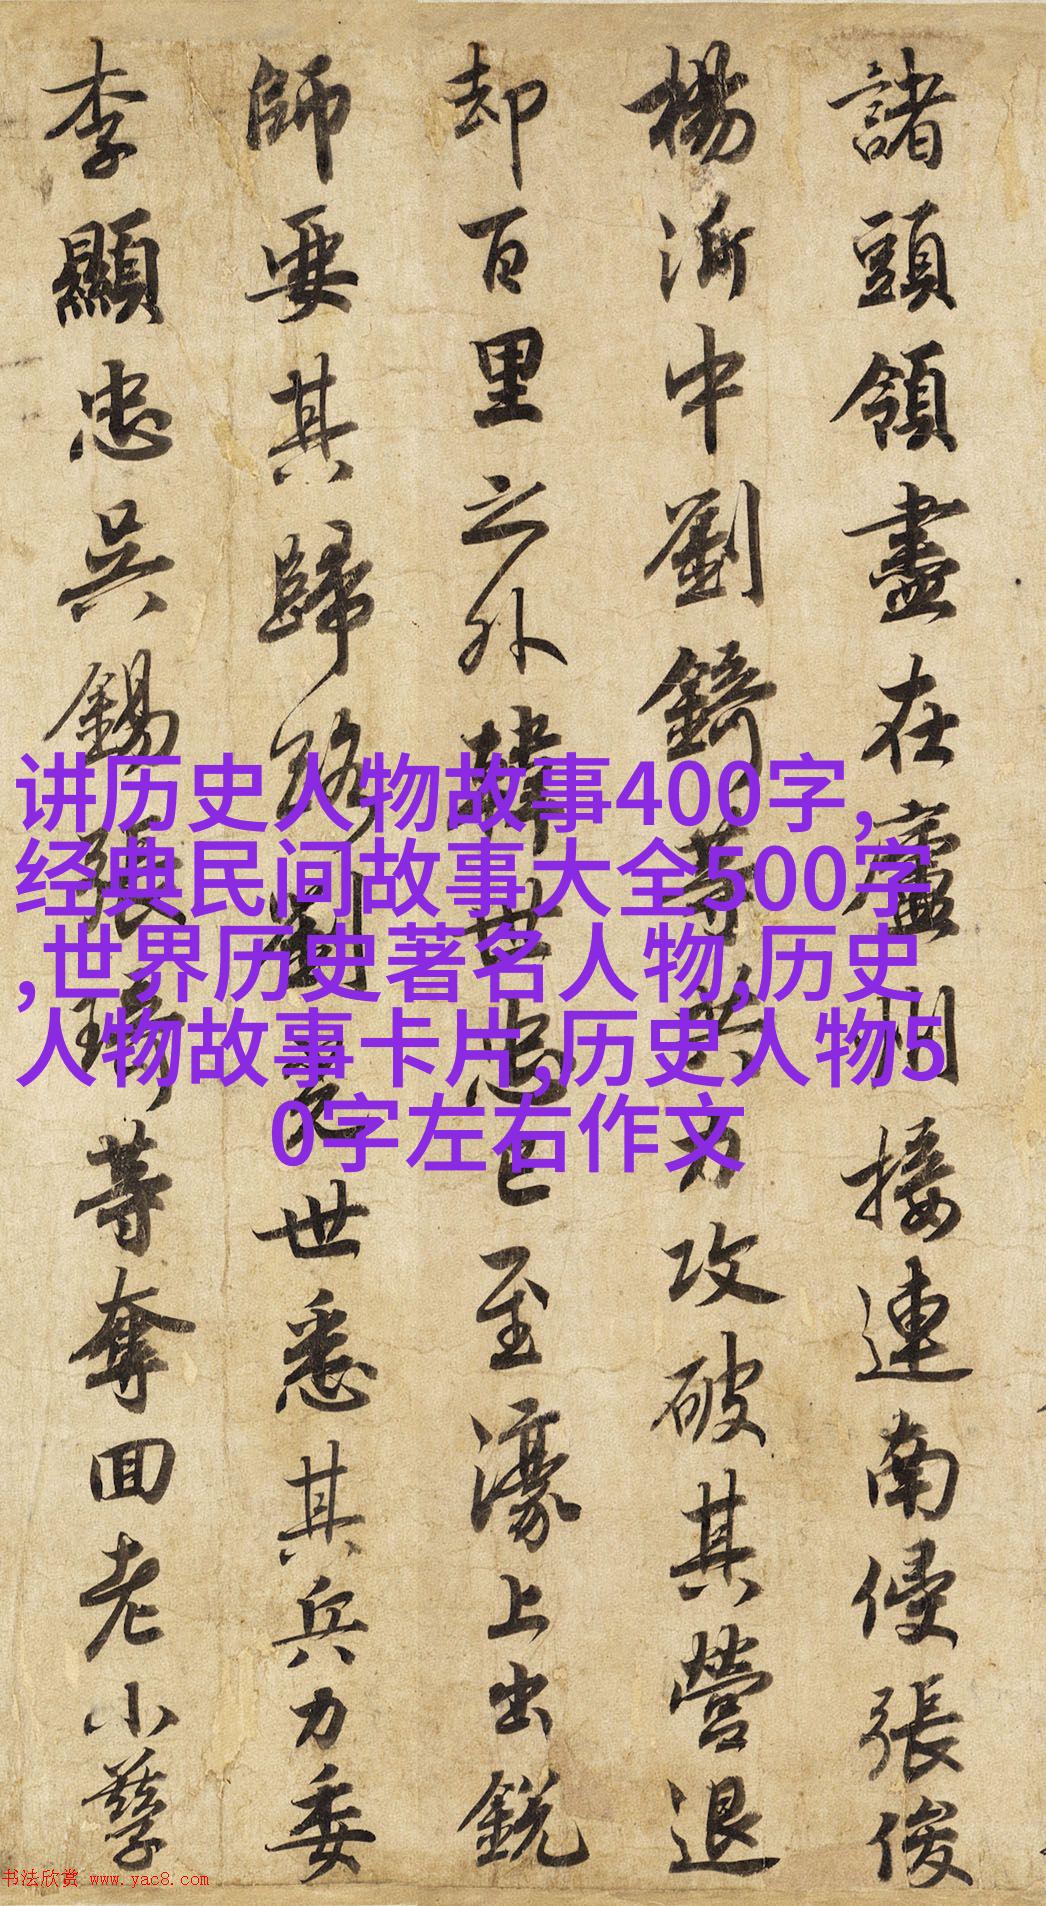 諸頭領盡在廬州接連南侵張俊
楊沂中劉錡等共力攻破其營退
却百里之外韓世忠已至濠上出銳
師要其歸路劉光世悉其兵力委
李顯忠吳錫張琦等奪回老小孳
讲历史人物故事400字,
经典民间故事大全500字
,世界历史著名人物,历史
人物故事卡片,历史人物5
0字左右作文
书法欣赏 www.yac8.com